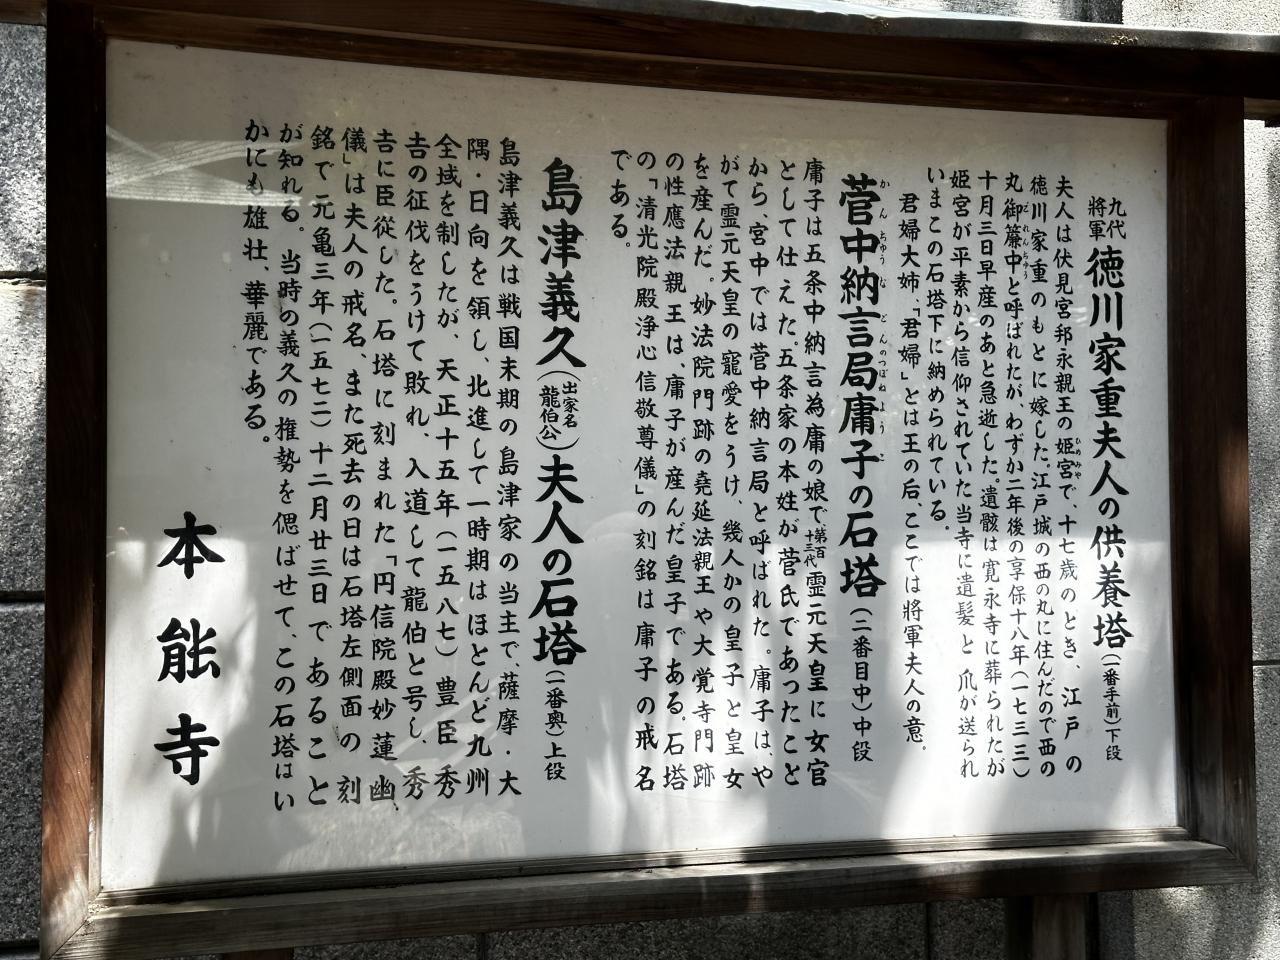 九代将軍 徳川家重夫人の供養塔(一番手前)下段
夫人は伏見宮邦永親王の姫宮で、十七歳のとき、江戸の
徳川家重のもとに嫁した。江戸城の西の丸に住んだので西の
丸御簾中と呼ばれたが、わずか二年後の享保十八年(一七三三)
十月三日早産のあと急逝した。遺骸は寛永寺に葬られたが
姫宮が平素から信仰されていた当寺に遺髪と爪が送られ
いまこの石塔下に納められている。
君婦大姉、「君婦」とは王の后、ここでは将軍夫人の意。
菅中納言局庸子の石塔(二番目中)中段
庸子は五条中納言為庸の娘で第百十三代霊元天皇に女官
として仕えた。五条家の本姓が菅氏であったこと
から、宮中では菅中納言局と呼ばれた。庸子は、や
がて霊元天皇の寵愛をうけ、幾人かの皇子と皇女
を産んだ。妙法院門跡の堯延法親王や大覚寺門跡
の性應法親王は、庸子が産んだ皇子である。石塔
の「清光院殿浄心信敬尊儀」の刻銘は庸子の戒名
である。
島津義久(出家名龍伯公)夫人の石塔(一番奥)上段
島津義久は戦国末期の島津家の当主で、薩摩・大
隅・日向を領し、北進して一時期はほとんど九州
全域を制したが、天正十五年(一五八七)豊臣秀
吉の征伐をうけて敗れ、入道して龍伯と号し、秀
吉に臣従した。石塔に刻まれた「円信院殿妙蓮幽
儀」は夫人の戒名、また死去の日は石塔左側面の刻
銘で元亀三年(一五七二)十二月廿三日であること
が知れる。当時の義久の権勢を偲ばせて、この石塔はい
かにも雄壮、華麗である。
本能寺